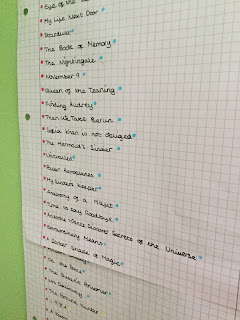 Eye of the
My Life Next Door
Stardust
The Book of Memory
The Nightingale
November 9
Queen of the Tearling
Finding Audrey
Then We Take Berlin
Sofia Khan is not obliged
The Mermaid's Sister
Unrivalled
Paper Aeroplanes
My Sister's Keeper
Anatomy of a Misfit
Time to Say Goodbye
Aristotle + Dante Discover Secrets of the Universe
Extraordinary Means
A Darker Shade of Magic
On the
The